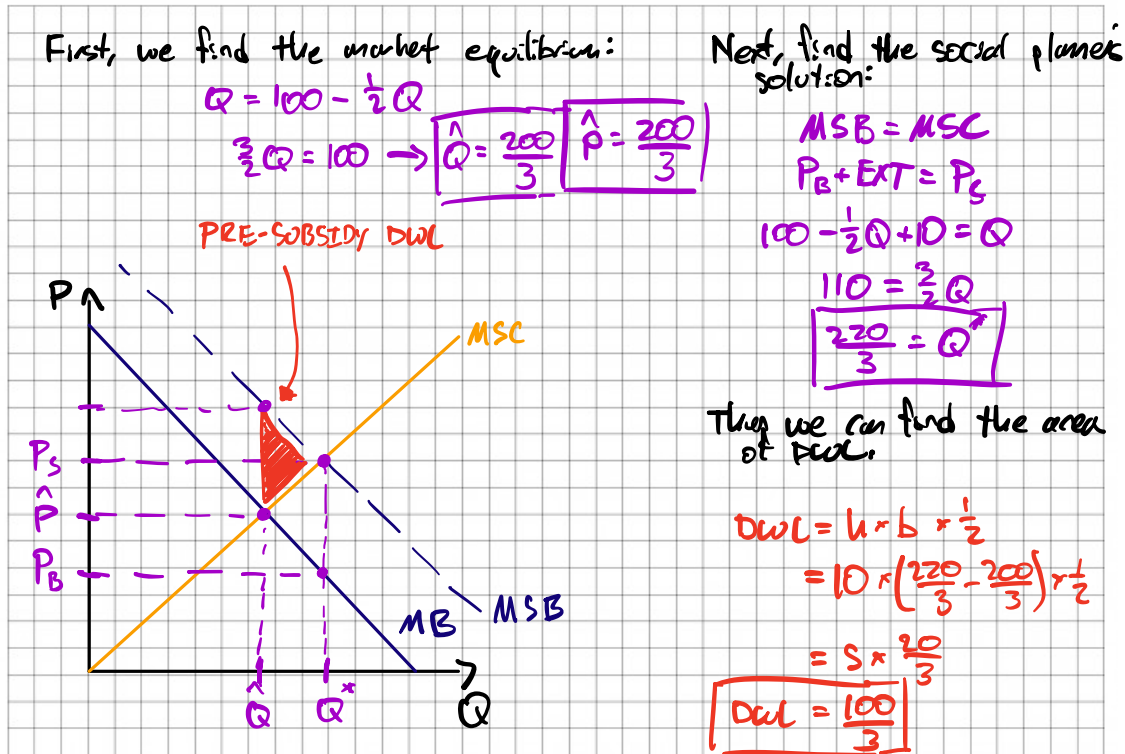 First, we find the market equilibrium:
Q = 100 - 1/2 Q
3/2 Q = 100 → Q̂ = 200/3 P̂ = 200/3
PRE-SUBSIDY DWL
P
MSC
P_S
P̂
P_B
MB
MSB
Q̂
Q*
Q
Next, find the social planner's
solution:
MSB = MSC
P_B + EXT = P_S
100 - 1/2 Q + 10 = Q
110 = 3/2 Q
220/3 = Q*
Then we can find the area
of DWL.
DWL = h × b × 1/2
= 10 × (220/3 - 200/3) × 1/2
= 5 × 20/3
DWL = 100/3